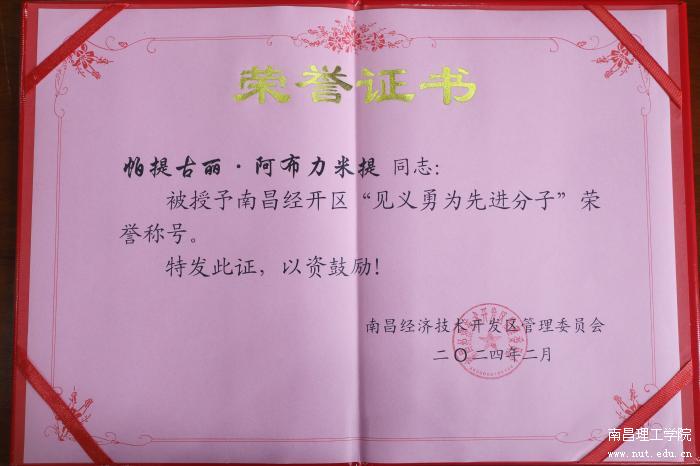 荣誉证书
帕提古丽·阿布力米提 同志:
被授予南昌经开区“见义勇为先进分子”荣
誉称号。
特发此证，以资鼓励!
南昌经济技术开发区管理委员会
二〇二四年二月
南昌理工学院
www.nut.edu.cn